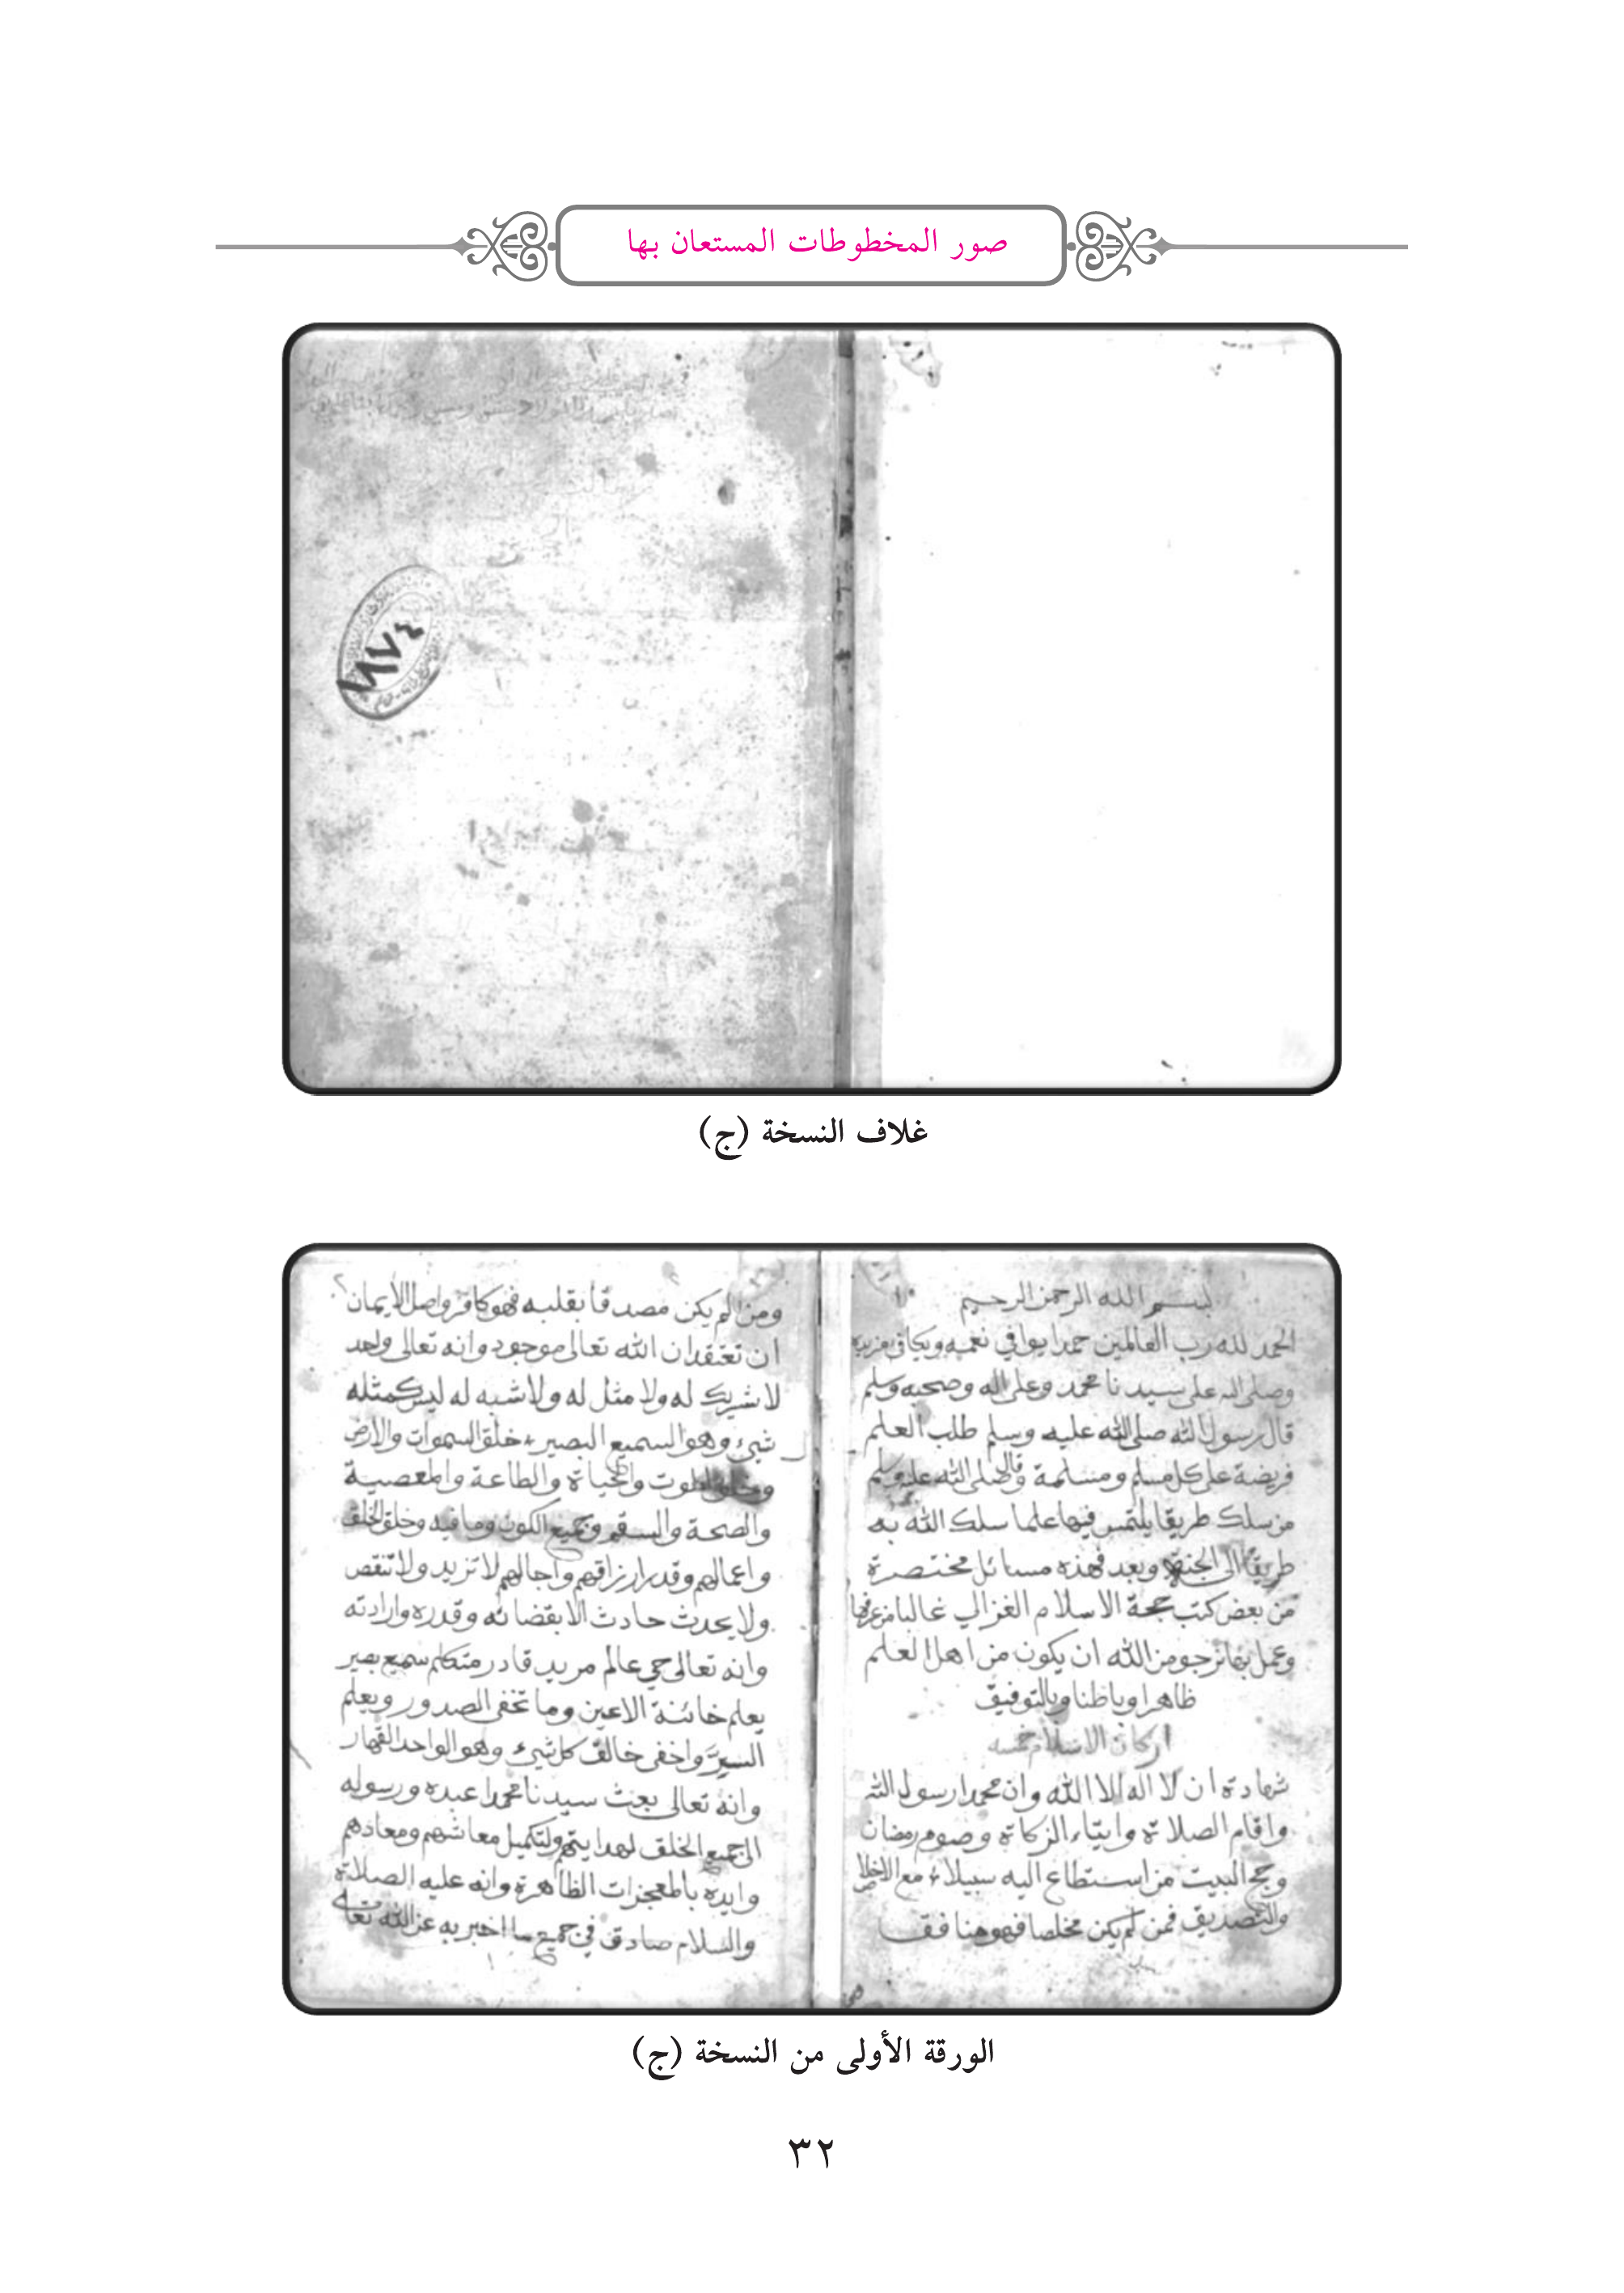 صور المخطوطات المستعان بها
١٨٧٤
غلاف النسخة (ج)
بسم الله الرحمن الرحيم
الحمد لله رب العالمين حمدا يوافي نعمه ويكافي مزيده
وصلى الله على سيدنا محمد وعلى اله وصحبه وسلم
قال رسول الله صلى الله عليه وسلم طلب العلم
فريضة على كل مسلم ومسلمة وقال صلى الله عليه وسلم
من سلك طريقا يلتمس فيها علما سلك الله به
طريقا الى الجنة وبعد فهذه مسائل مختصرة
من بعض كتب حجة الاسلام الغزالي غالبا من عرفها
وعمل بها نرجو من الله ان يكون من اهل العلم
ظاهرا وباطنا وبالتوفيق
اركان الاسلام خمسه
شهادة ان لا اله الا الله وان محمدا رسول الله
واقام الصلاة وايتاء الزكاة وصوم رمضان
وحج البيت من استطاع اليه سبيلا مع الاخلاص
والتصديق فمن لم يكن مخلصا فهو منافق
ومن لم يكن مصدقا بقلبه فهو كافر واصل الايمان
ان تعتقد ان الله تعالى موجود وانه تعالى واحد
لا شريك له ولا مثل له ولا شبه له ليس كمثله
شيء وهو السميع البصير خلق السموات والارض
وخلق الموت والحياة والطاعة والمعصية
والصحة والسقم وجميع الكون وما فيه وخلق الخلق
واعمالهم وقدر ارزاقهم واجالهم لا تزيد ولا تنقص
ولا يحدث حادث الا بقضائه وقدره وارادته
وانه تعالى حي عالم مريد قادر متكلم سميع بصير
يعلم خائنة الاعين وما تخفى الصدور ويعلم
السر واخفى خالق كل شيء وهو الواحد القهار
وانه تعالى بعث سيدنا محمدا عبده ورسوله
الى جميع الخلق لهدايتهم ولتكميل معاشهم ومعادهم
وايده بالمعجزات الظاهرة وانه عليه الصلاة
والسلام صادق في جميع ما اخبر به عن الله تعالى
الورقة الأولى من النسخة (ج)
٣٢